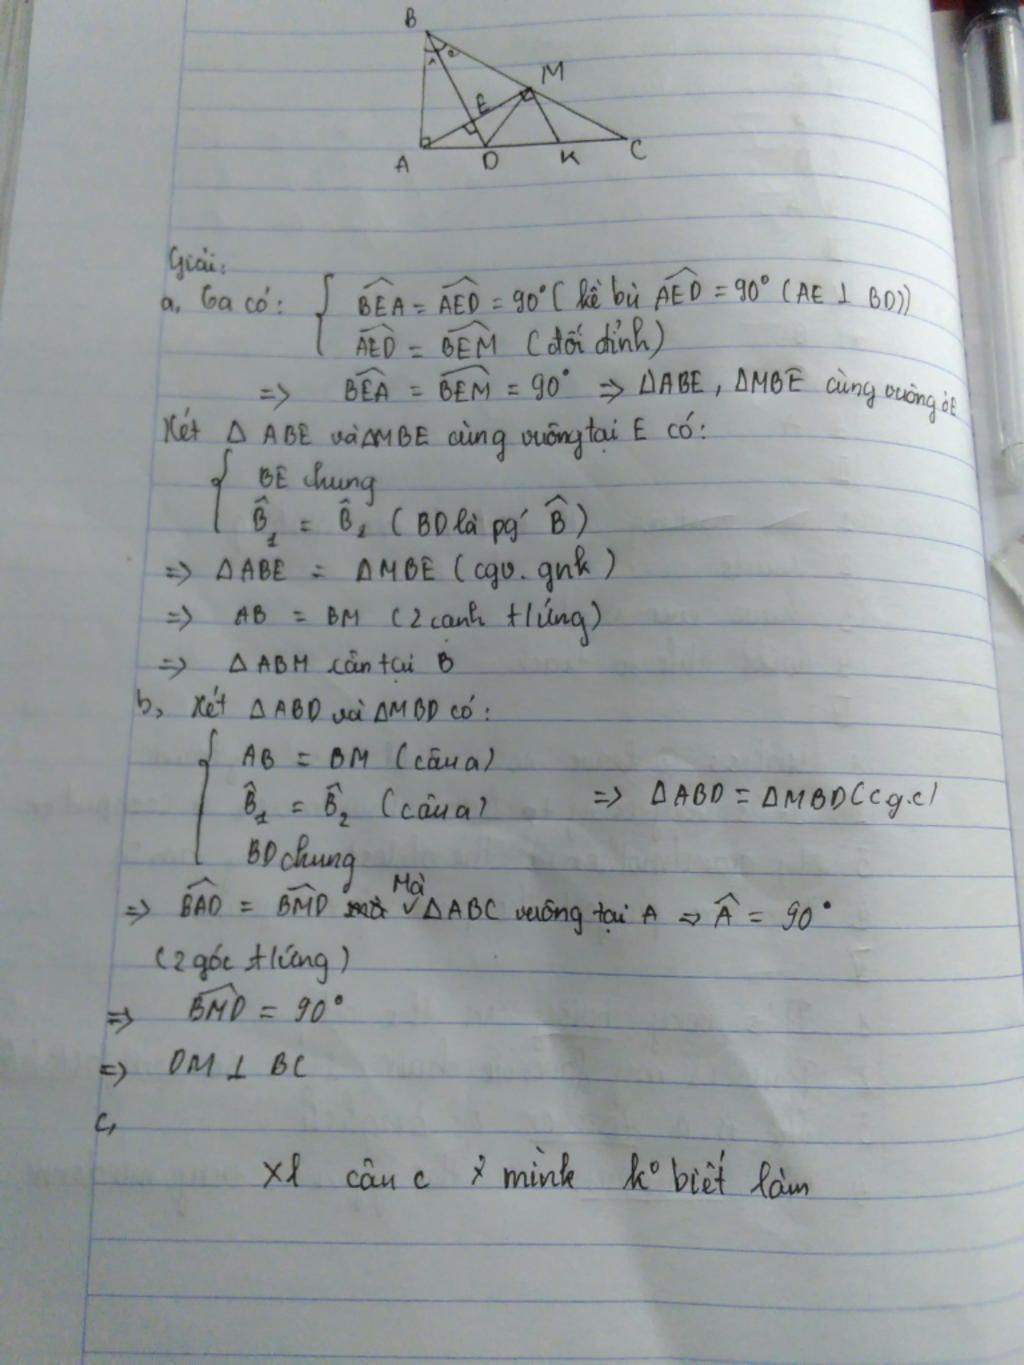 B
1 2
M
E
A D K C
Giải:
a, Ta có: { BEA = AED = 90° ( kề bù AED = 90° (AE ⊥ BD))
AED = BEM (đối đỉnh)
=> BEA = BEM = 90° => ΔABE, ΔMBE cùng vuông ở E
Xét Δ ABE và ΔMBE cùng vuông tại E có:
{ BE chung
B̂1 = B̂2 ( BD là pg B̂ )
=> ΔABE = ΔMBE ( cgv. gnk )
=> AB = BM ( 2 cạnh t/ứng )
=> ΔABM cân tại B
b, Xét ΔABD và ΔMBD có:
{ AB = BM ( câu a )
B̂1 = B̂2 ( câu a ) => ΔABD = ΔMBD ( c g.c )
BD chung
=> BAD = BMD Mà ΔABC vuông tại A => Â = 90°
( 2 góc t/ứng )
=> BMD = 90°
=> DM ⊥ BC
c,
xl câu c mình k° biết làm